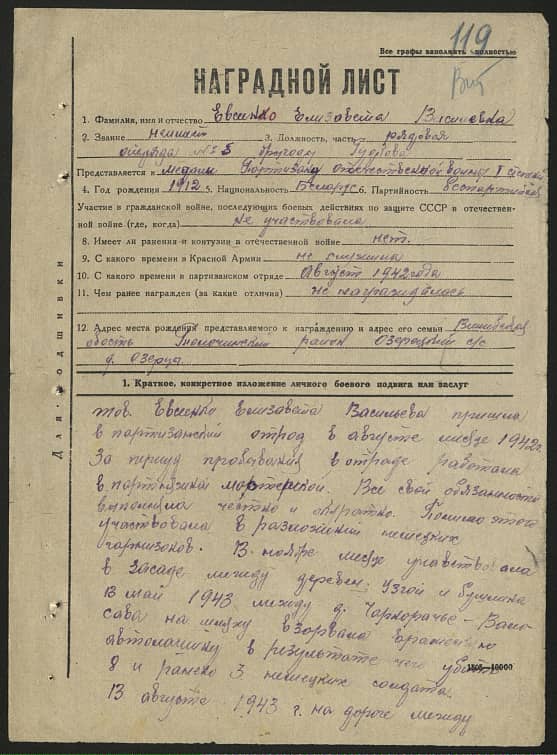 119
Все графы заполнять полностью
Вит
НАГРАДНОЙ ЛИСТ
1. Фамилия, имя и отчество Евсинко Елизавета Васильевна
2. Звание не имеет 3. Должность, часть рядовая
отряда № 5 бригады Гудкова
Представляется к медали Партизану отечественной войны I степени
4. Год рождения 1912 5. Национальность Беларус. 6. Партийность беспартийная
Участие в гражданской войне, последующих боевых действиях по защите СССР и отечествен-
ной войне (где, когда) не участвовала
8. Имеет ли ранения и контузии в отечественной войне нет.
9. С какого времени в Красной Армии не служила
10. С какого времени в партизанском отряде Август 1942 года
11. Чем ранее награжден (за какие отличия) не награждалась
12. Адрес места рождения представляемого к награждению и адрес его семьи Витебская
область Толочинский район Озерецкий с/с
д. Озерца.
Для подшивки
1. Краткое, конкретное изложение личного боевого подвига или заслуг
тов. Евсинко Елизавета Васильева пришла
в партизанский отряд в августе месяце 1942г.
За период пробывания в отряде работала
в партизанской мастерской. Все свои обязанности
выполняла честно и обратно. Помимо этого
участвовала в разложении немецких
гарнизонов. В ноябре месяце учавствовала
в засаде между деревен. Узгой и
В май 1943 между д. Чаркорачье -
на шляху взорвала вражескую
автомашину в результате чего убито
8 и ранено 3 немецких солдата.
1805—10000
13 августе 1943 г. на дороге между